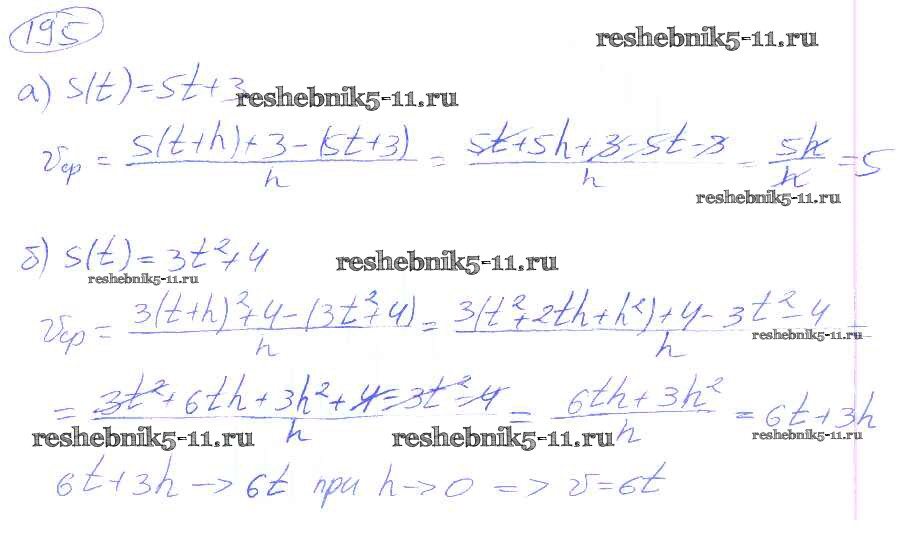 195
reshebnik5-11.ru
а) s(t)=5t+3
reshebnik5-11.ru
υср = (5(t+h)+3-(5t+3))/h = (5t+5h+3-5t-3)/h = 5h/h = 5
reshebnik5-11.ru
б) s(t)=3t²+4
reshebnik5-11.ru
reshebnik5-11.ru
υср = (3(t+h)²+4-(3t²+4))/h = (3(t²+2th+h²)+4-3t²-4)/h =
reshebnik5-11.ru
= (3t²+6th+3h²+4-3t²-4)/h = (6th+3h²)/h = 6t+3h
reshebnik5-11.ru reshebnik5-11.ru reshebnik5-11.ru
6t+3h → 6t при h → 0 => υ=6t